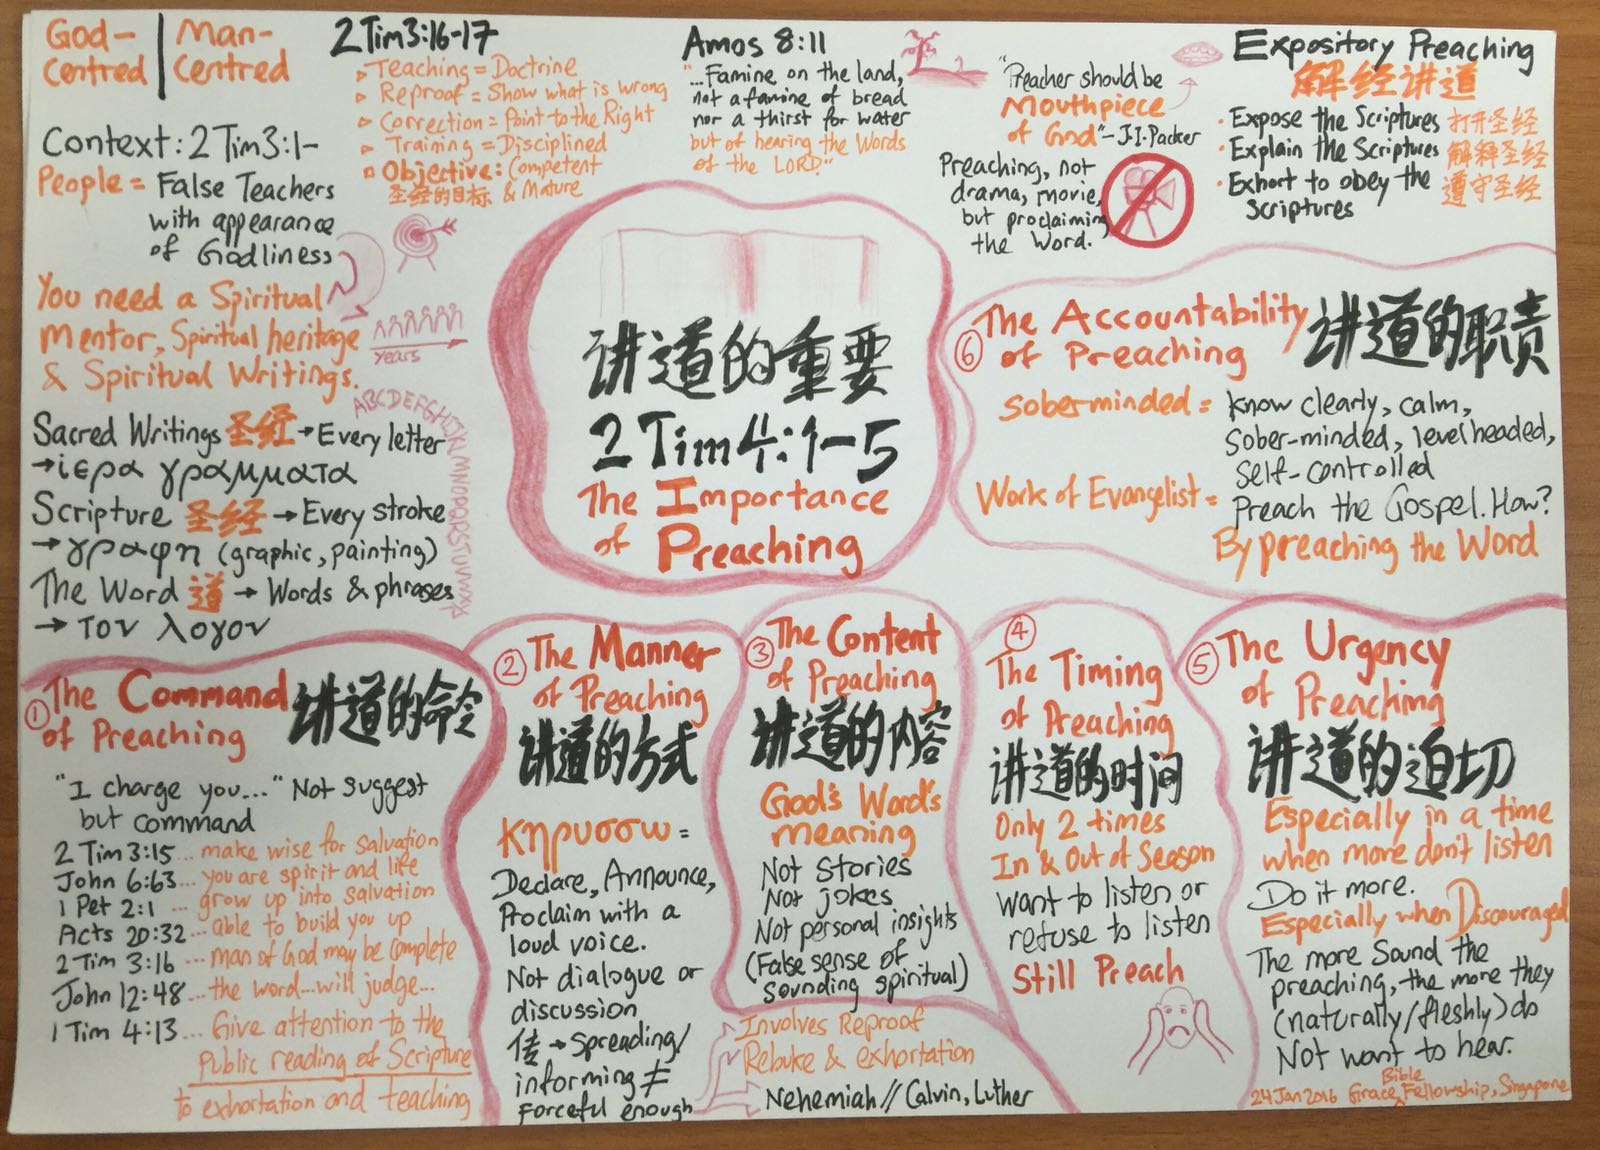 God-
Centred
Man-
Centred
Context: 2 Tim 3:1-
People = False Teachers
with appearance
of Godliness
You need a Spiritual
Mentor, Spiritual heritage
& Spiritual Writings.
years
ABCDEFGHIJKLMNOPQRSTUVWXYZ
Sacred Writings 圣经 → Every letter
→ ιερα γραμματα
Scripture 圣经 → Every stroke
→ γραφη (graphic, painting)
The Word 道 → Words & phrases
→ τον λογον
2 Tim 3:16-17
▹ Teaching = Doctrine
▹ Reproof = Show what is wrong
▹ Correction = Point to the Right
▹ Training = Disciplined
Objective: Competent
圣经的目标 & Mature
Amos 8:11
"...Famine on the land,
not a famine of bread
nor a thirst for water
but of hearing the Words
of the LORD."
"Preacher should be
Mouthpiece
of God" - J.I. Packer
Preaching, not
drama, movie,
but proclaiming
the Word.
Expository Preaching
解经讲道
• Expose the Scriptures 打开圣经
• Explain the Scriptures 解释圣经
• Exhort to obey the 遵守圣经
Scriptures
讲道的重要
2 Tim 4:1-5
The Importance
of Preaching
① The Command
of Preaching
讲道的命令
"I charge you..." Not suggest
but command
2 Tim 3:15... make wise for salvation
John 6:63... you are spirit and life
1 Pet 2:1 ... grow up into salvation
Acts 20:32... able to build you up
2 Tim 3:16 ... man of God may be complete
John 12:48... the word...will judge...
1 Tim 4:13... Give attention to the
Public reading of Scripture
to exhortation and teaching
② The Manner
of Preaching
讲道的方式
κηρυσσω =
Declare, Announce,
Proclaim with a
loud voice.
Not dialogue or
discussion
传 → Spreading/
informing ≠
Forceful enough
③ The Content
of Preaching
讲道的内容
God's Word's
meaning
Not stories
Not jokes
Not personal insights
(False sense of
sounding spiritual)
Involves Reproof
Rebuke & exhortation
Nehemiah // Calvin, Luther
④
The Timing
of Preaching
讲道的时间
Only 2 times
In & Out of Season
Want to listen or
refuse to listen
Still Preach
⑤ The Urgency
of Preaching
讲道的迫切
Especially in a time
when more don't listen
Do it more.
Especially when Discouraged
The more Sound the
preaching, the more they
(naturally/fleshly) do
Not want to hear.
24 Jan 2016 Grace Bible Fellowship, Singapore
⑥ The Accountability
of Preaching
讲道的职责
Soberminded = Know clearly, calm,
sober-minded, levelheaded,
self-controlled
Work of Evangelist = Preach the Gospel. How?
By preaching the Word